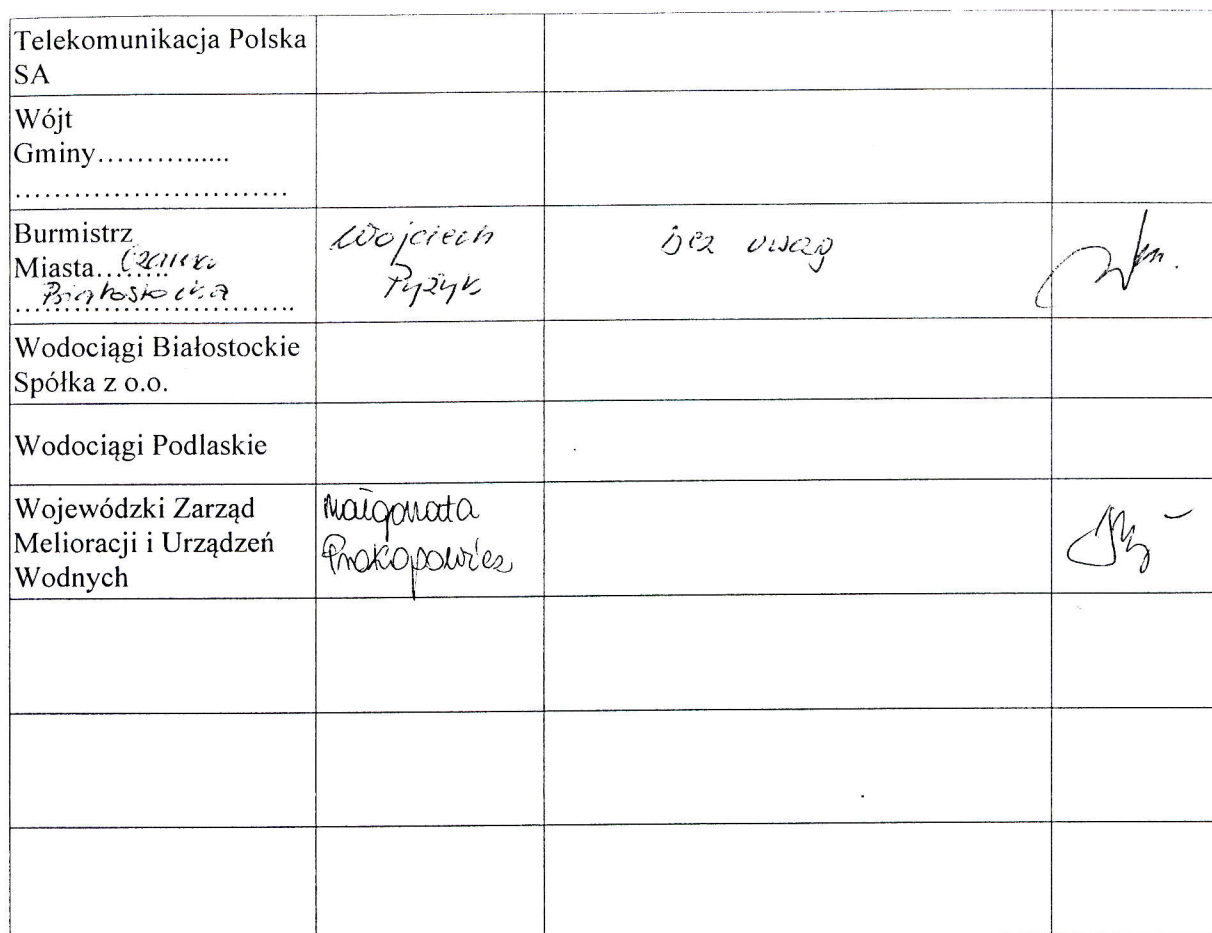 Telekomunikacja Polska
SA
Wójt
Gminy…………......
…………………………
Burmistrz
Miasta……… Czarna
Białostocka
Wojciech
Pyżyk
bez uwag
Wodociągi Białostockie
Spółka z o.o.
Wodociągi Podlaskie
Wojewódzki Zarząd
Melioracji i Urządzeń
Wodnych
Małgorzata
Prokopowicz